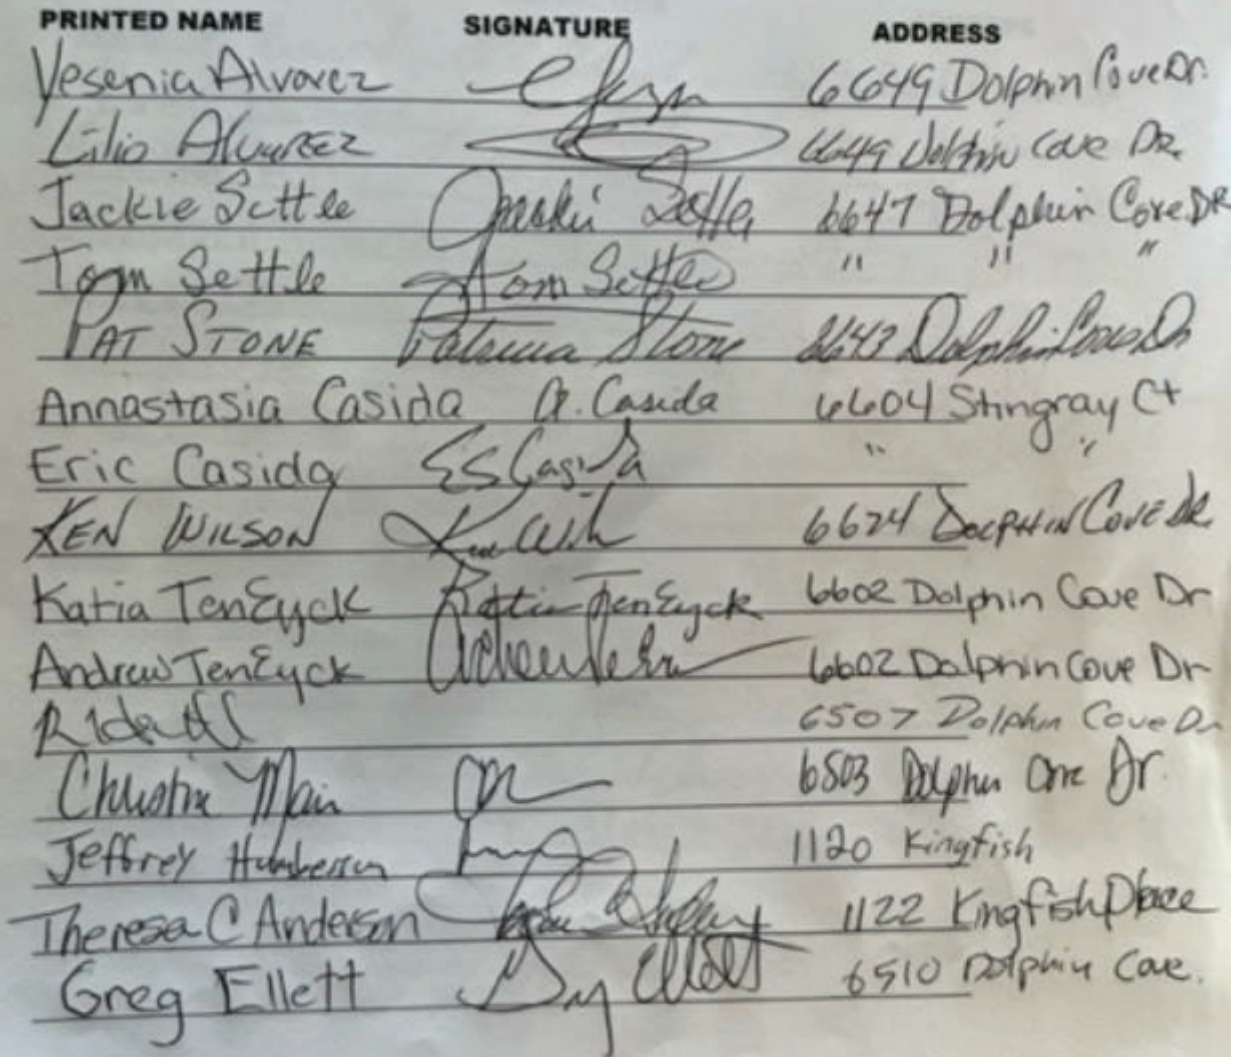 PRINTED NAME SIGNATURE ADDRESS
Yesenia Alvarez 6649 Dolphin Cove Dr.
Lilio Alvarez 6649 Dolphin Cove DR.
Jackie Settle Jackie Settle 6647 Dolphin Cove DR
Tom Settle Tom Settle " " "
PAT STONE Patricia Stone 6643 Dolphin Cove Dr
Annastasia Casida A. Casida 6604 Stingray Ct
Eric Casida ES Casida " "
KEN WILSON 6624 DOLPHIN COVE DR
Katia TenEyck Katia TenEyck 6602 Dolphin Cove Dr
Andrew TenEyck 6602 Dolphin Cove Dr
6507 Dolphin Cove Dr
Christine Main 6503 Dolphin Cove Dr.
Jeffrey 1120 Kingfish
Theresa C Anderson 1122 Kingfish Place
Greg Ellett Greg Ellett 6510 Dolphin Cove.